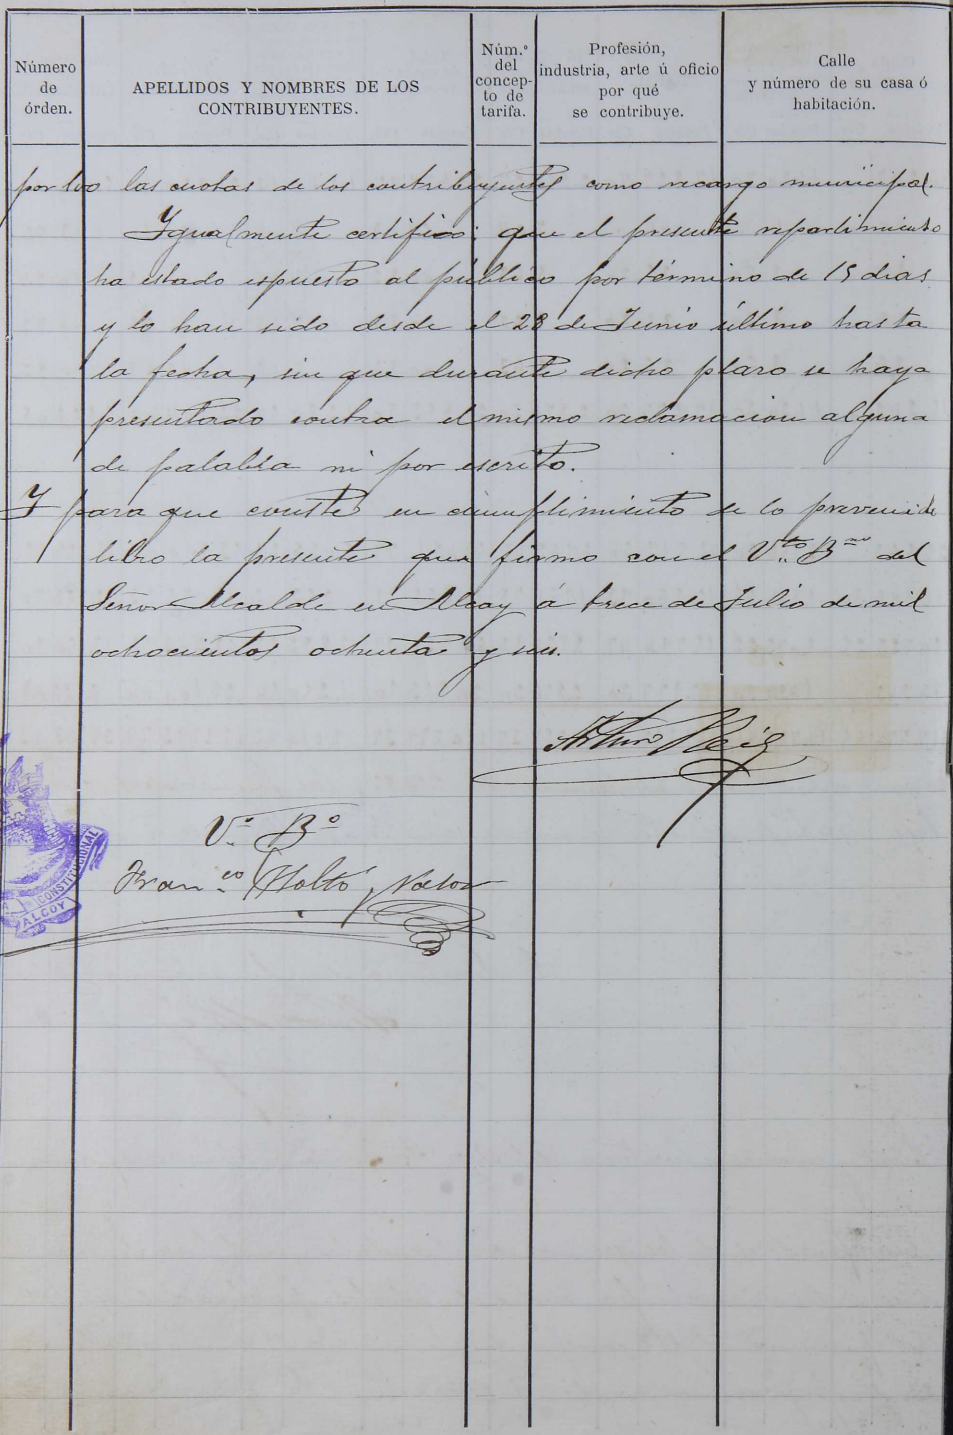 Número
de
órden.
APELLIDOS Y NOMBRES DE LOS
CONTRIBUYENTES.
Núm.º
del
concep-
to de
tarifa.
Profesión,
industria, arte ú oficio
por qué
se contribuye.
Calle
y número de su casa ó
habitación.
por 100 las cuotas de los contribuyentes como recargo municipal.
Igualmente certifico: que el presente repartimiento
ha estado espuesto al público por término de 15 dias
y lo han sido desde el 28 de Junio último hasta
la fecha, sin que durante dicho plazo se haya
presentado contra el mismo reclamacion alguna
de palabra ni por escrito.
Y para que conste en cumplimiento de lo prevenido
libro la presente que firmo con el V.to B.no del
Señor Alcalde en Alcoy á trece de Julio de mil
ochocientos ochenta y seis.
Arturo Reig
V.º B.º
Fran.co Moltó
CONSTITUCIONAL
ALCOY